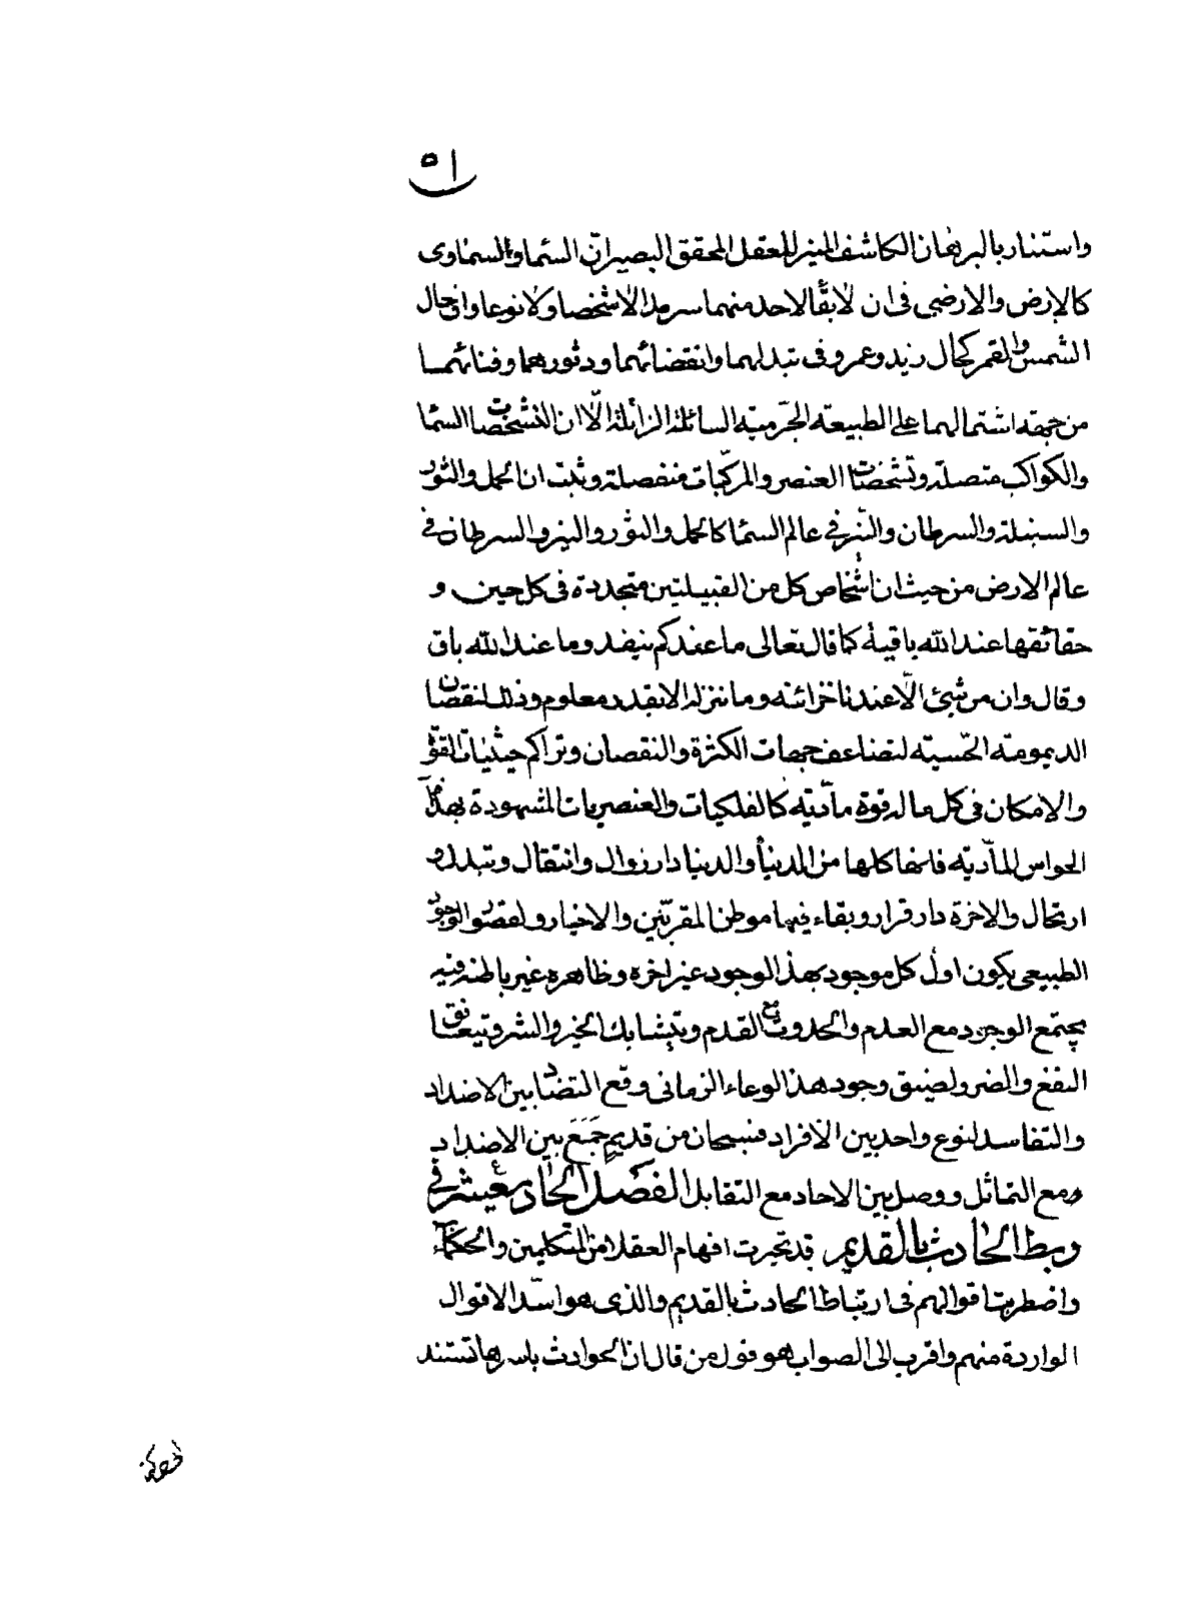 ٥١
واستنار بالبرهان الكاشف المنير للعقل المحقق البصير انّ السّماء والسماوى
كالارض والارضى فى ان لا بقأ لاحد منهما سرمدا لا شخصا ولا نوعا وان حال
الشمس والقمر كحال زيد وعمرو فى تبدلهما وانقضائهما ودثورهما وفنائهما
من جهة اشتمالهما على الطبيعة الجرمية السائلة الزائلة الّا ان التشخصات السمّا
والكواكب متصلة وتشخصات العنصر والمركّبات منفصلة وثبت ان الحمل والثور
والسنبلة والسرطان والنسر فى عالم السمّا كالحمل والثور والبر والسرطان فى
عالم الارض من حيث ان اشخاص كل من القبيلتين متجددة فى كل حين و
حقائقها عند الله باقية كما قال تعالى ما عندكم ينفد وما عند الله باق
وقال وان من شئ الّا عندنا خزائنه وما ننزله الا بقدر معلوم وذلك لنقصان
الديمومة الحسّية لتضاعف جهات الكثرة والنقصان وتراكم حيثيات القوّة
والامكان فى كل ما له قوة مادّية كالفلكيات والعنصريات المشهودة بهذه
الحواس المادّية فانها كلها من الدنيأ والدنيا دار زوال وانتقال وتبدل و
ارتحال والاخرة دار قرار وبقاء فيها موطن المقربّين والاخيار ولقصور الوجود
الطبيعى يكون اول كل موجود بهذا الوجود غير اخره وظاهره غير باطنه فيه
يجتمع الوجود مع العدم والحدوث مع القدم ويتشابك الخير والشر ويتعانق
النفع والضر ولضيق وجود هذا الوعاء الزمانى وقع التضاد بين الاضداد
والتفاسد لنوع واحد بين الافراد فسبحان من قديم جَمَعَ بين الاضداد
ومع التماثل ووصل بين الاحاد مع التقابل الفصل الحادى عشر فى
ربط الحادث بالقديم قد تحيرت افهام العقلا من المتكلمين والحكماء
واضطربت اقوالهم فى ارتباط الحادث بالقديم والذى هو اسدّ الاقوال
الواردة منهم واقرب الى الصواب هو قول من قال ان الحوادث باسرها تستند